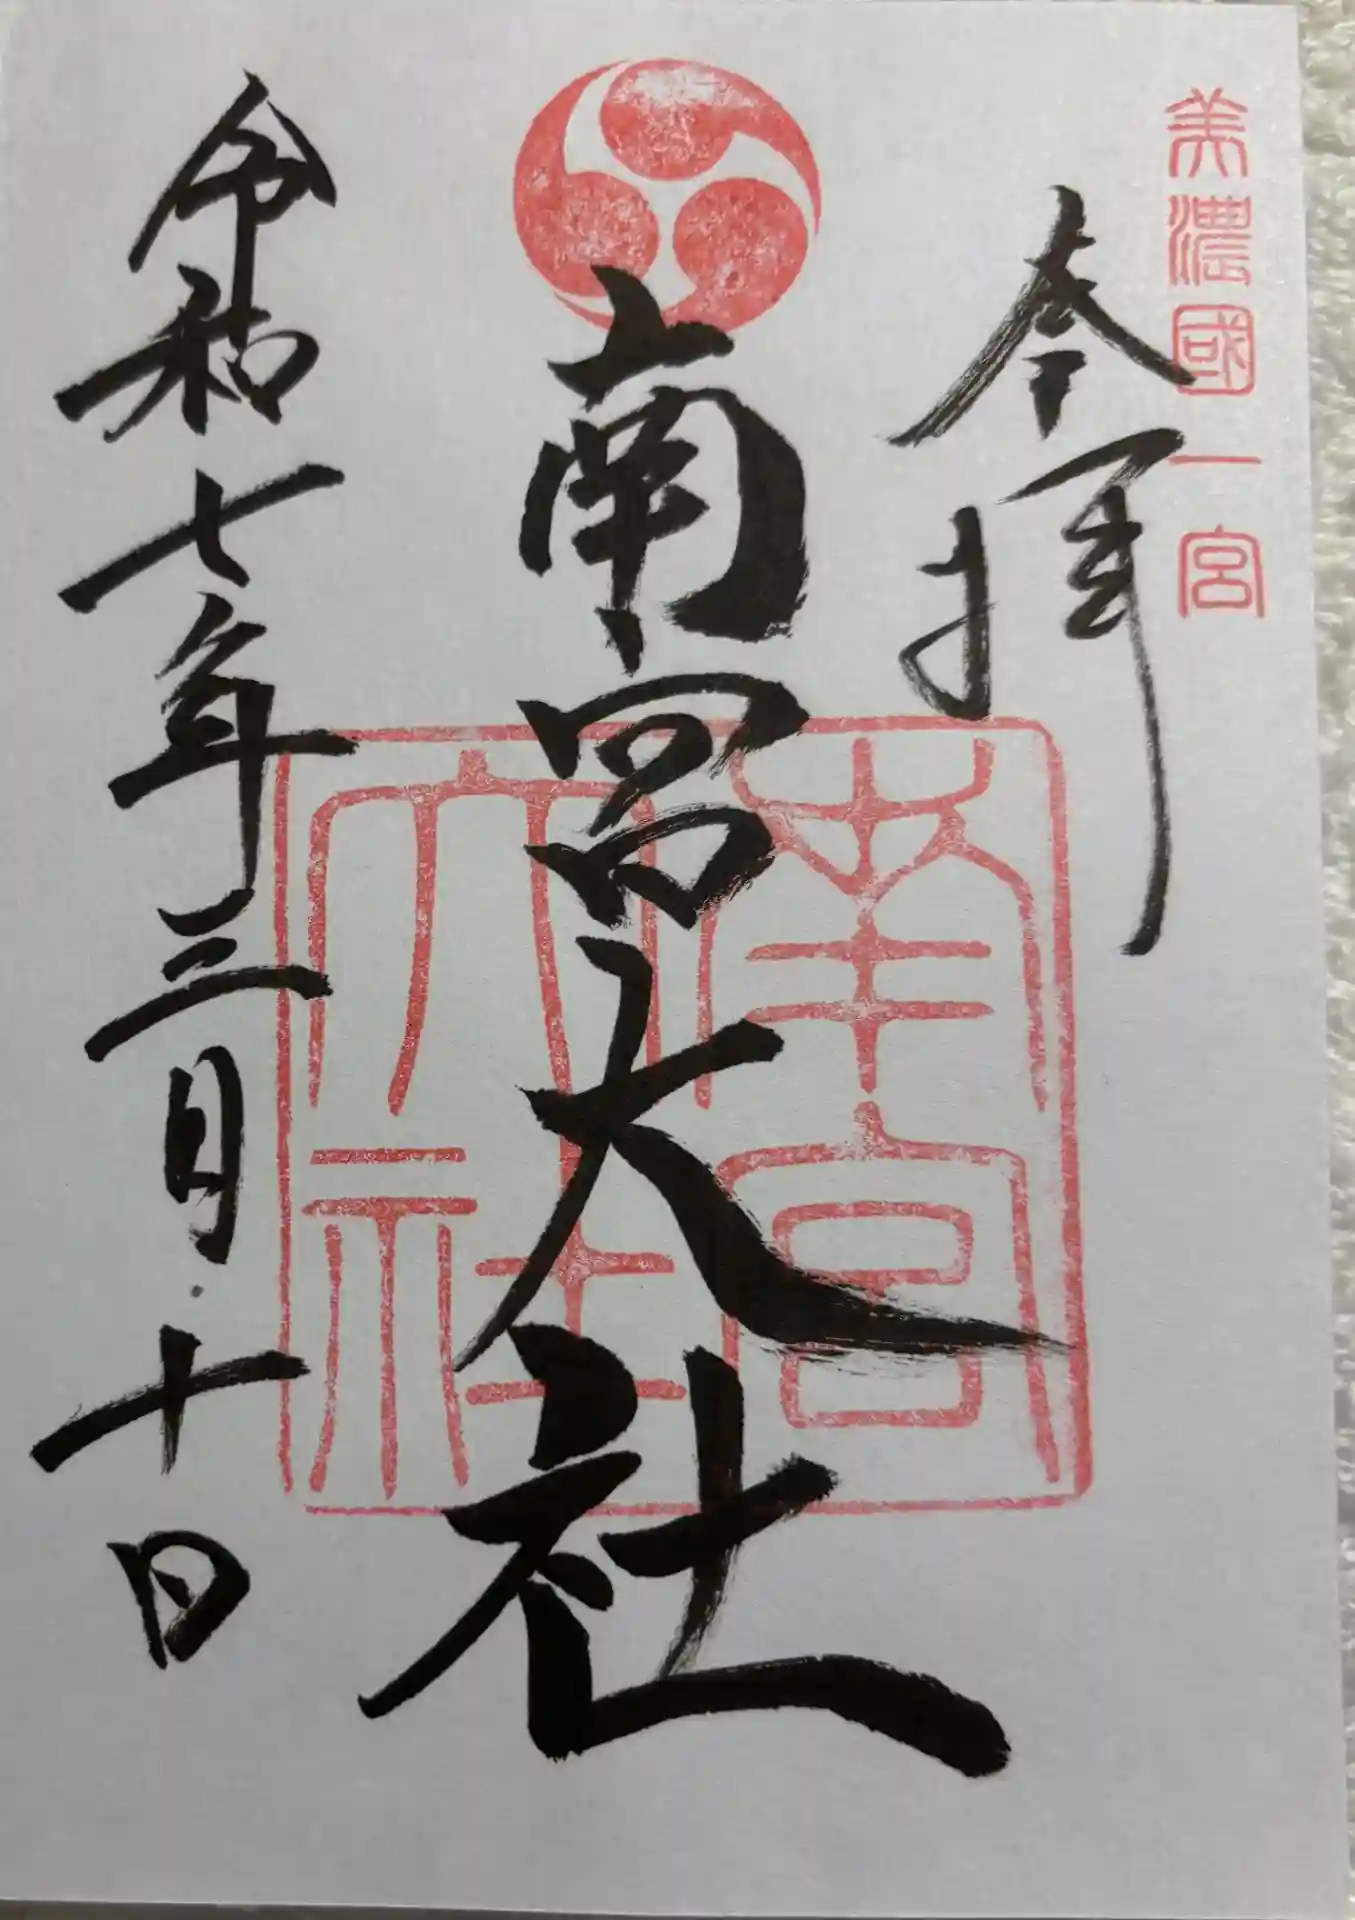 美濃國一宮
奉拝
南宮大社
南宮
大社
令和七年三月十日